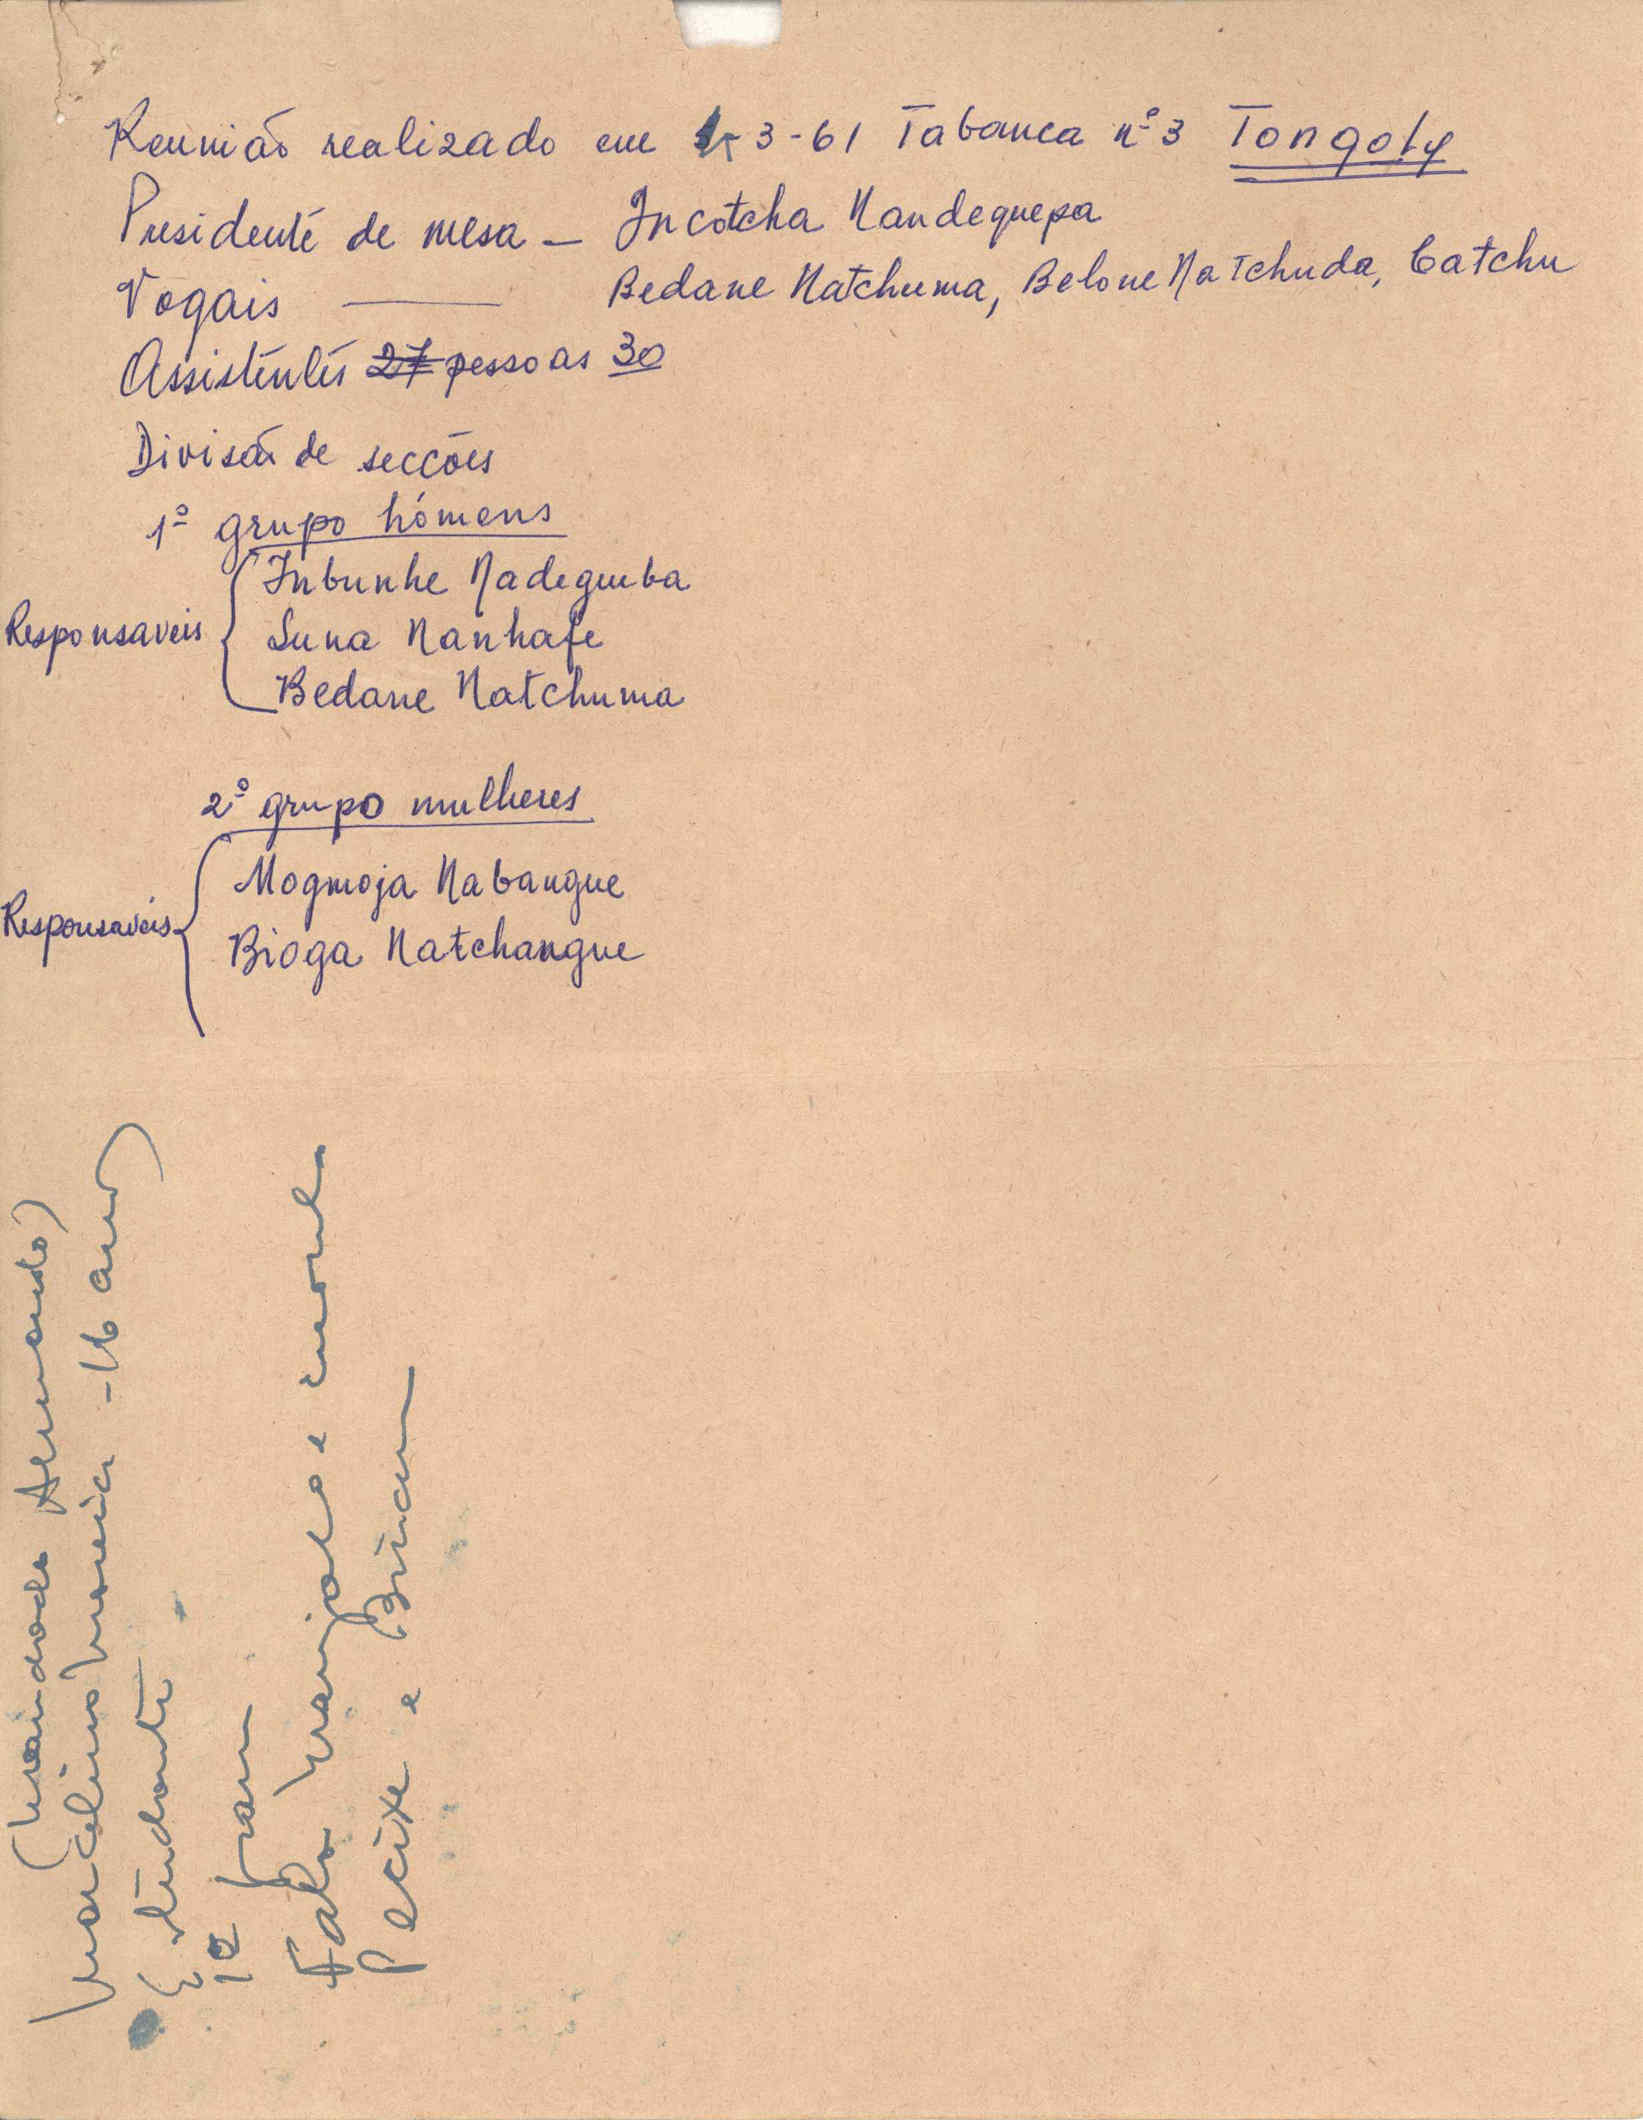 Reunião realizado em 5-3-61 Tabanca nº 3 Tongoly
Presidente de mesa — Incotcha Nandequepa
Vogais — Bedane Natchuma, Belone Natchuda, Catchu
Assistentes 27 pessoas 30
Divisão de secções
1º grupo hómens
Responsaveis
Inbunhe Nadegumba
Suna Nanhafe
Bedane Natchuma
2º grupo mulheres
Responsaveis
Mogmoja Nabangue
Bioga Natchangue
Armando)
Marcelino Moreira - 16 anos)
Estudante
1º
Fala manjaco e
Peixe e